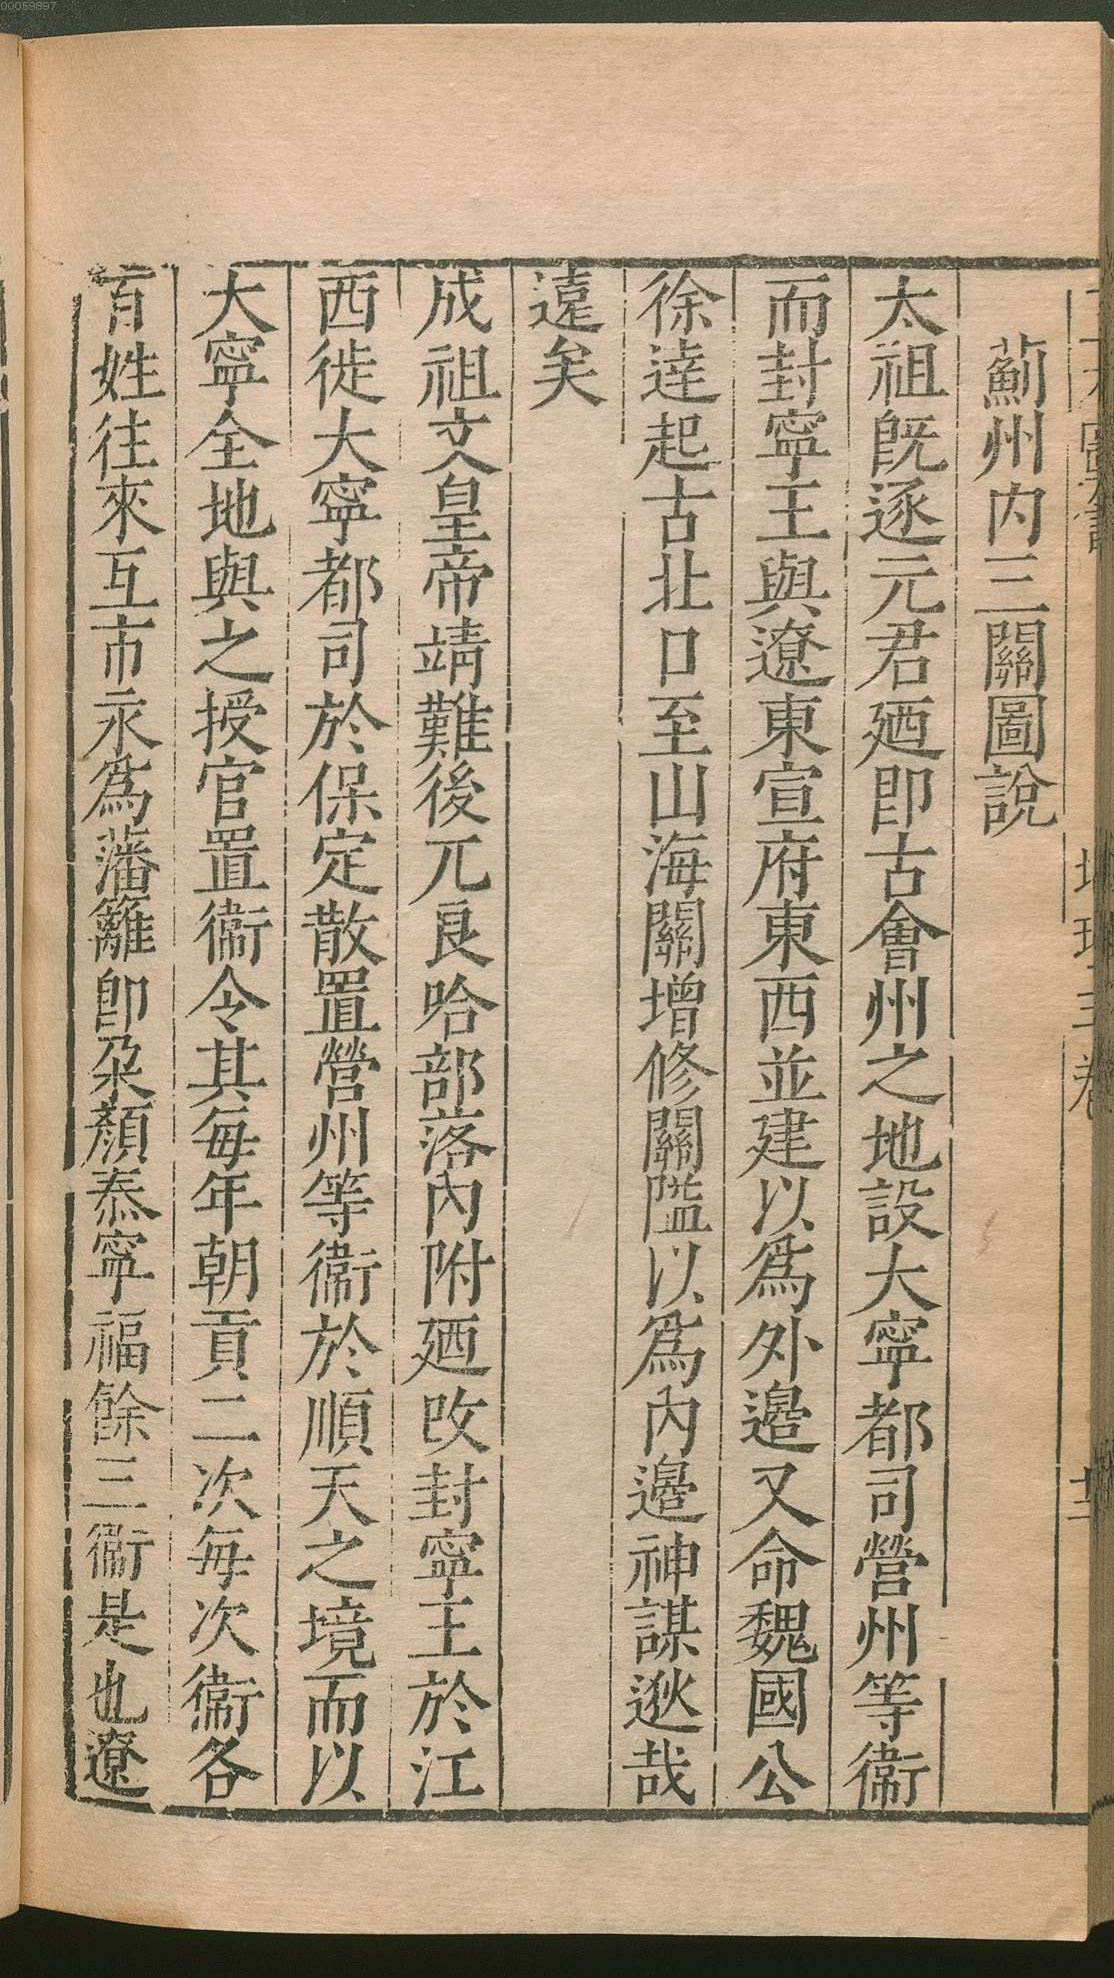 薊州内三關圖說
太祖既逐元君廼即古會州之地設大寧都司營州等衞
而封寧王與遼東宣府東西並建以為外邊又命魏國公
徐達起古北口至山海關增修關隘以為內邊神謀逖哉
遠矣
成祖文皇帝靖難後兀良哈部落內附廼改封寧王於江
西徙大寧都司於保定散置營州等衞於順天之境而以
大寧全地與之授官置衞令其每年朝貢二次每次衞各
百姓往來互市永為藩籬即朶顏泰寧福餘三衞是也遼
00059897